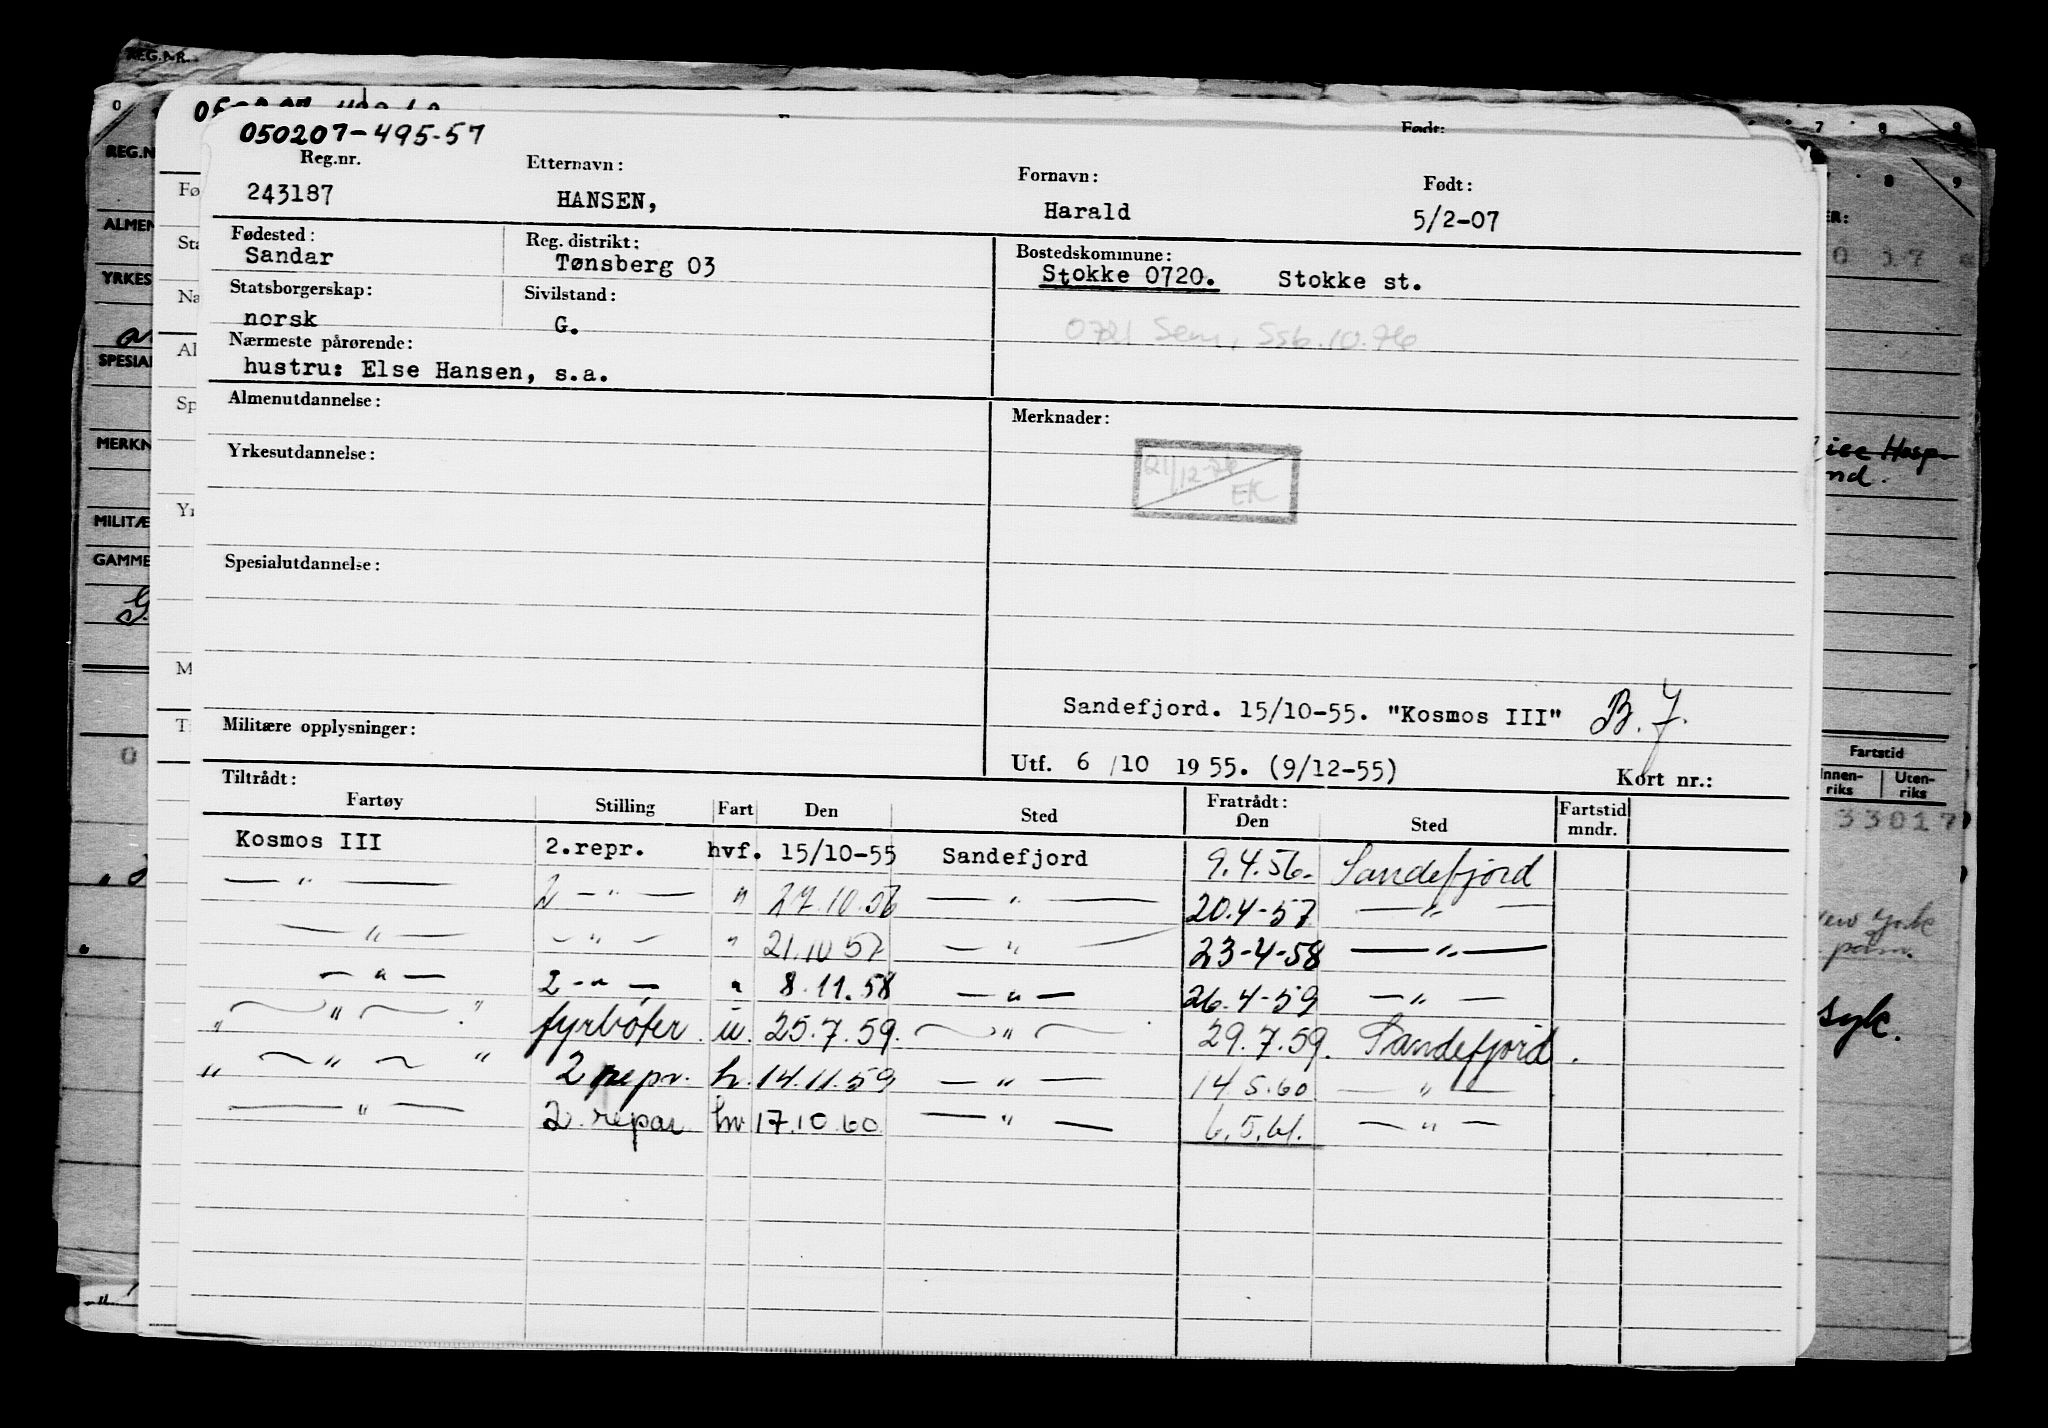 REG.NR.
050207-495-57
Reg.nr. Etternavn: Fornavn: Født:
243187 HANSEN, Harald 5/2-07
Fødested: Reg. distrikt: Bostedskommune:
Sandar Tønsberg 03 Stokke 0720. Stokke st.
Statsborgerskap: Sivilstand:
norsk G.
0721 Sem, Ssb.10.76
Nærmeste pårørende:
hustru: Else Hansen, s.a.
Almenutdannelse: Merknader:
Yrkesutdannelse:
21/12-76
EK
Spesialutdannelse:
Sandefjord. 15/10-55. "Kosmos III" B.J.
Militære opplysninger:
Utf. 6/10 1955. (9/12-55) Kort nr.:
Tiltrådt: Fratrådt:
Fartøy Stilling Fart Den Sted Den Sted Fartstid mndr.
Kosmos III 2.repr. hvf. 15/10-55 Sandefjord 9.4.56. Sandefjord
— " — 2 — " — " 27.10.56 — " — 20.4-57 — " —
— " — — " — " 21.10 57 — " — 23-4-58 — " —
— " — 2 — " — " 8.11.58 — " — 26.4-59 — " —
" — " — " fyrbøter. u. 25.7.59. — " — 29.7.59. Sandefjord.
" — " — " 2 repr. h. 14.11.59 — " — 14 5.60 — " —
— " — 2. repar. hv 17.10.60 — " — 6.5.61. — " —